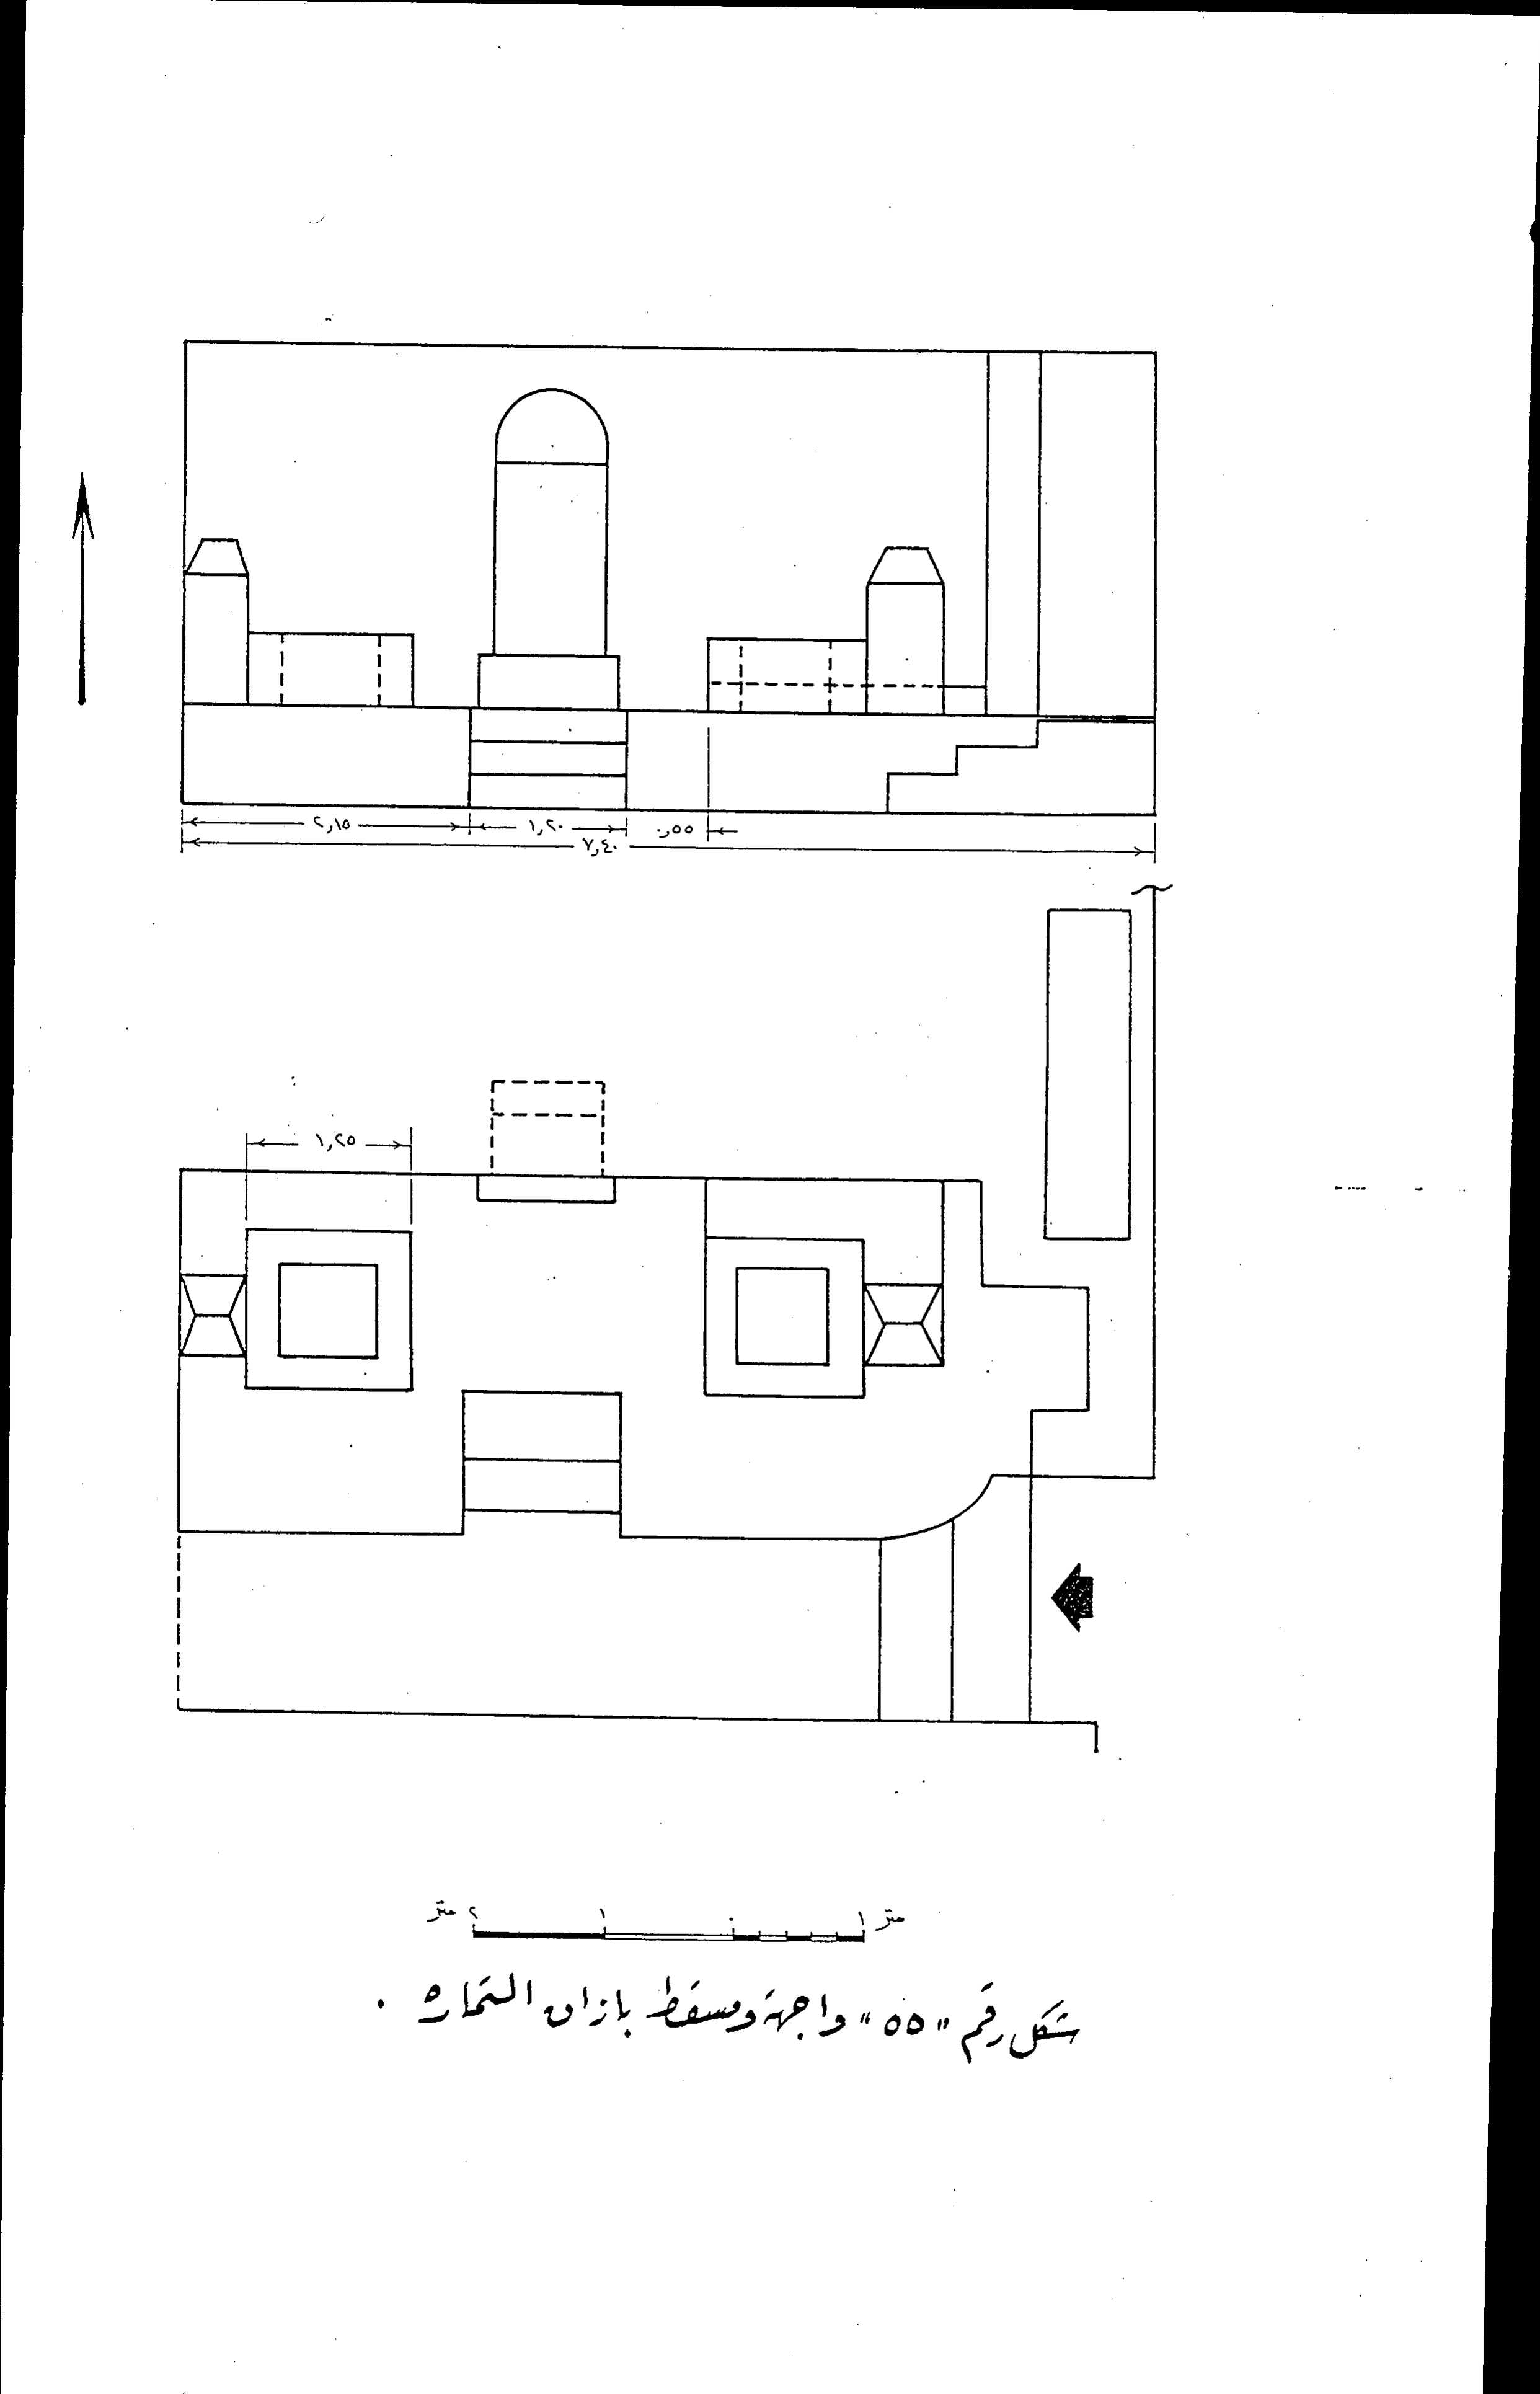 ٢٫١٥ ١٫٢٠ ٠٫٥٥
٧٫٤٠
١٫٢٥
متر ٢ ١ ٠ ١ متر
شكل رقم "٥٥" واجهة ومسقط بازان الشماره .